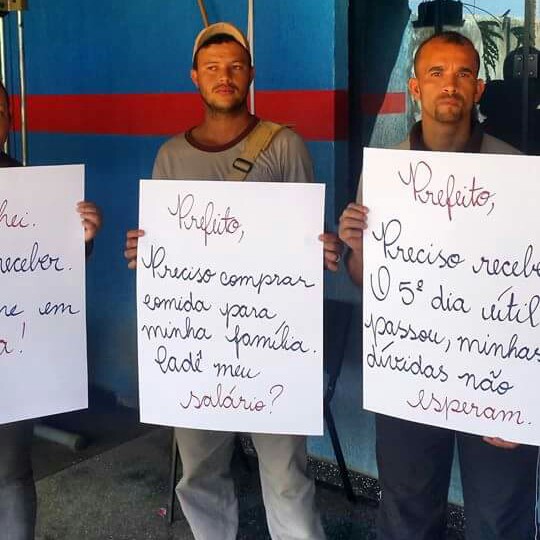 hei.
receber.
em
a!
Prefeito,
Preciso comprar
comida para
minha família.
Cadê meu
salário?
Prefeito,
Preciso recebe
O 5º dia útil
passou, minhas
dívidas não
esperam.